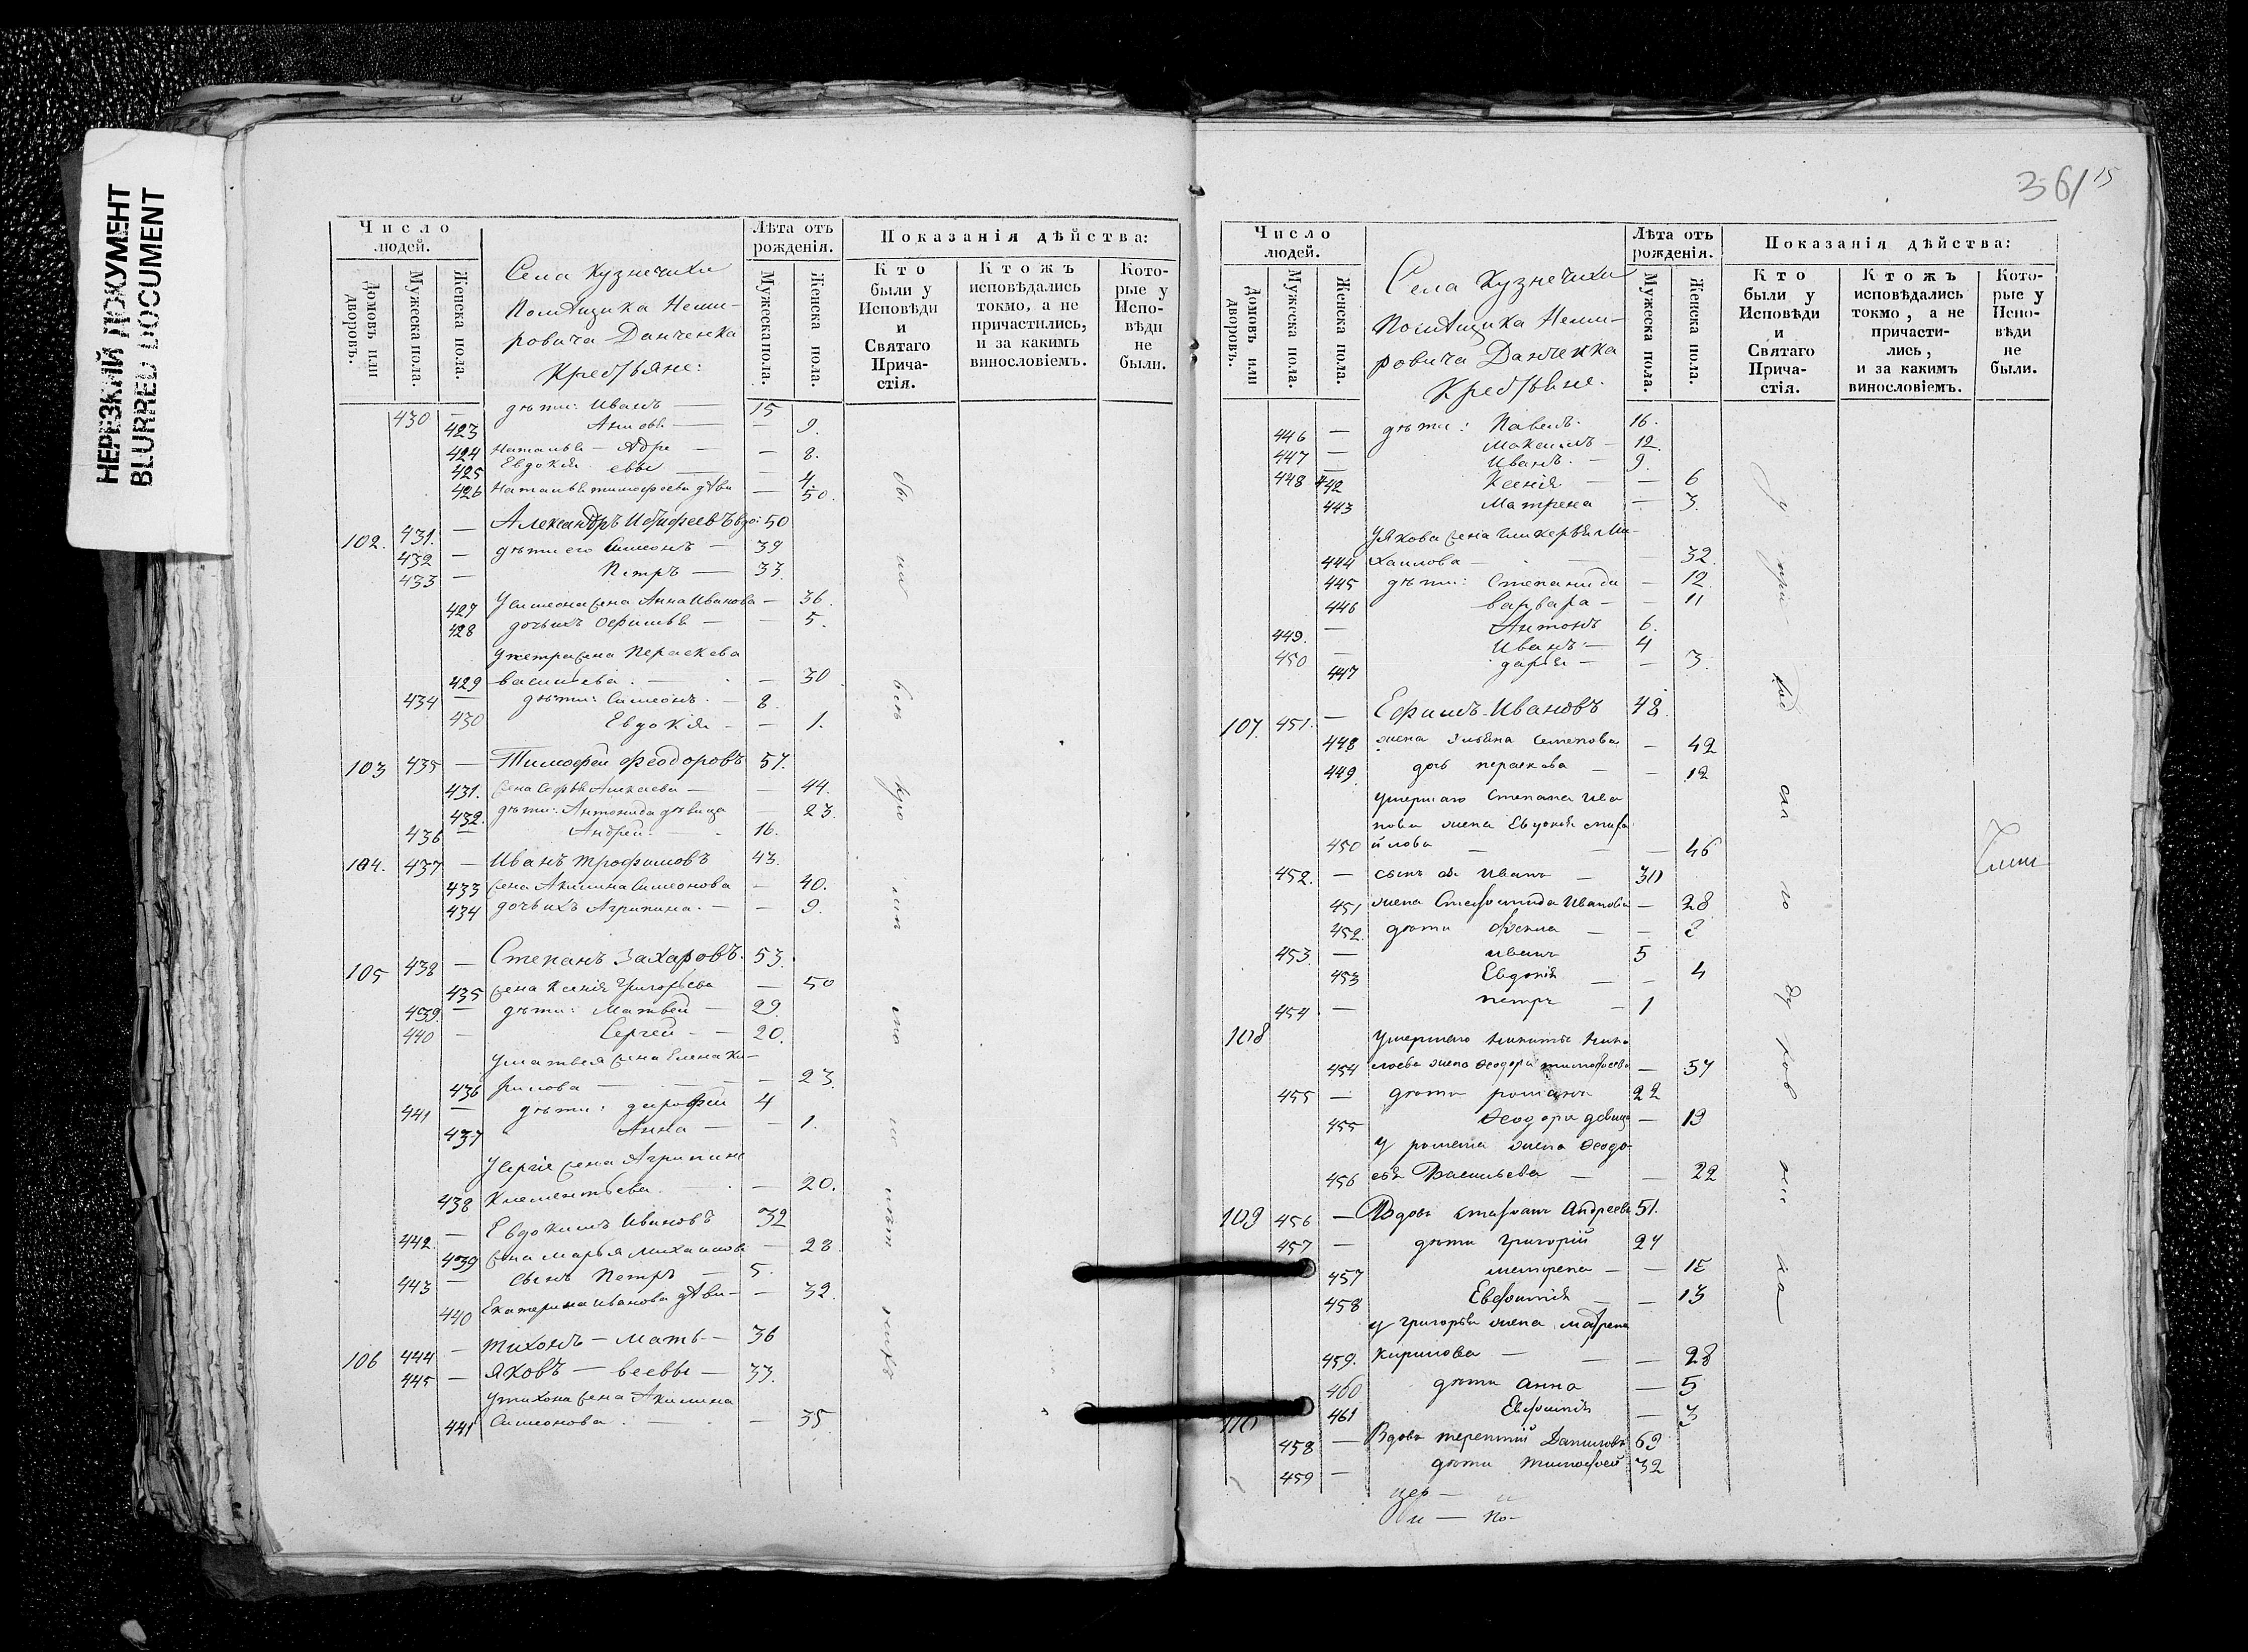 НЕРЕЗКИЙ ДОКУМЕНТ
BLURRED DOCUMENT
Число людей.
Домовъ или дворовъ.
Мужеска пола.
Женска пола.
Села Кузнечихи
Помѣщика Неми-
ровича Данченка
Крестьяне:
Лѣта отъ рожденія.
Мужеска пола.
Женска пола.
Показанія дѣйства:
Кто были у Исповѣди и Святаго Прича-стія.
Ктожъ исповѣдались токмо, а не причастились, и за какимъ винословіемъ.
Кото-рые у Испо-вѣди не были.
430 — дѣти: Иванъ — 15
423 — 9.
424 Наталья — Адре — — 8.
425 Евдокія евы — — 4.
426 Наталья Тимофеева дѣви — 50.
102. 431. — Александръ вдо: 50
432 — дѣти его Симеонъ — 39
433 — Петръ — 33.
427 У Симеона жена Анна Иванова — 36.
428 дочь ихъ — — 5.
У Петра жена Параскева
429 Васильева. — — 30
434 — дѣти: Симеонъ. — 8.
430 Евдокія — — 1.
103 435 — Тимофей Феодоровъ 57.
431. жена Софья Алексеева — — 44.
432. дѣти: Антонида дѣвица — 23.
436 — Андрей. — 16.
104. 437 — Иванъ Трофимовъ 43.
433 жена Акилина Симеонова — 40.
434 дочь ихъ Агрипина. — — 9.
105 438 — Степанъ Захаровъ. 53.
435 жена Ксенія Григорьева — 50
439. — дѣти: Матвей — 29.
440 — Сергей — — 20.
У Матвея жена Елена Ки-
436 рилова — — — 23.
441 — дѣти: Дорофей 4
437 Анна — — 1.
У Сергія жена Агрипина
438 Климентьева. — — 20.
442 — Евдокимъ Ивановъ 32
439 жена Марья Михаилова — 28.
443 — сынъ Петръ — 5.
440 Екатерина Иванова дѣви — — 32.
106 444 — Тихонъ — Мать — 36
445 — Яковъ — веевы — 33.
У Тихона жена Акилина
441 Симеонова. — — 35.
361 15
Число людей.
Домовъ или дворовъ.
Мужеска пола.
Женска пола.
Села Кузнечихи
Помѣщика Неми-
ровича Данченка
Крестьяне.
Лѣта отъ рожденія.
Мужеска пола.
Женска пола.
Показанія дѣйства:
Кто были у Исповѣди и Святаго Прича-стія.
Ктожъ исповѣдались токмо, а не причасти-лись, и за какимъ винословіемъ.
Кото-рые у Испо-вѣди не были.
446 — дѣти: Павелъ. 16.
447 — Максимъ — 12.
448 — Иванъ. — 9.
442 Ксенія — — 6
443 Матрена — 3.
У Якова жена Гликерья Ми-
444 хаилова — — 32.
445 дѣти: Степанида — 12.
446 Варвара — — 11
449. — Антонъ 6.
450 — Иванъ — 4
447 Дарья — — 3.
107. 451. — Ефимъ Ивановъ 48.
448 жена Ульяна Семенова — 42
449. дочь Параскева — — 12
Умершаго Степана Ива
нова жена Евдокія
450 — — 46
452. — сынъ Иванъ — 30
451 жена Стефанида Иванова — 28
452. дѣти —
453. — Иванъ 5
453 Евдокія — — 4
454 — Петръ — 1
108 Умершаго Никиты Нико
454 лаева жена Феодора Тимофеева — 57
455 — дѣти Романъ 22
455 Феодора девица — 19
У Романа жена Феодо
456 сья Васильева — — 22
109 456 — Вдовъ Стефанъ Андреевъ 51.
457 — дѣти Григорій 27
457 Матрена — — 15
458 Евфимія — — 13
У Григорья жена Матрена
459. Кирилова — — — 28
460 дѣти Анна — 5
461 Евфимія — 3
110 458 — Вдовъ Терентій Даниловъ 63
459 — дѣти Тимофей 32